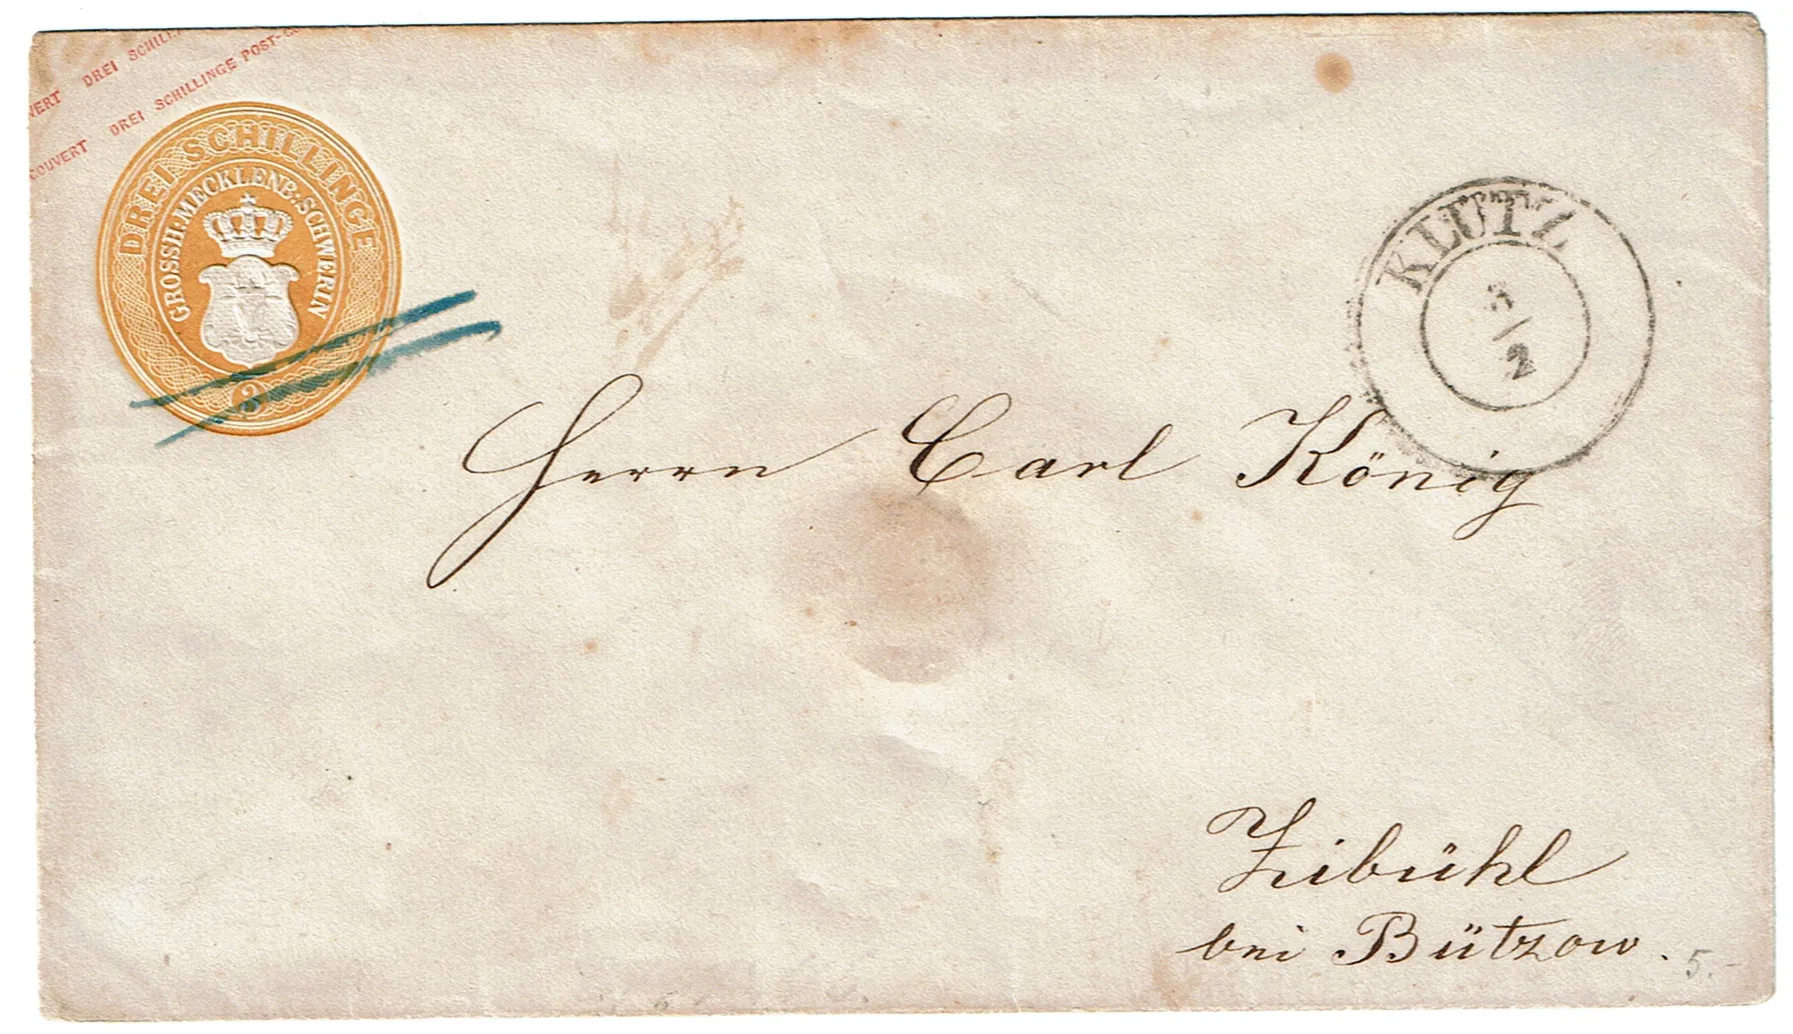 VERT DREI SCHILL
COUVERT DREI SCHILLINGE POST-C
DREI SCHILLINGE
GROSSH. MECKLENB: SCHWERIN
3
KLUTZ
3/2
Herrn Carl König
Zibühl
bei Bützow.
5.-